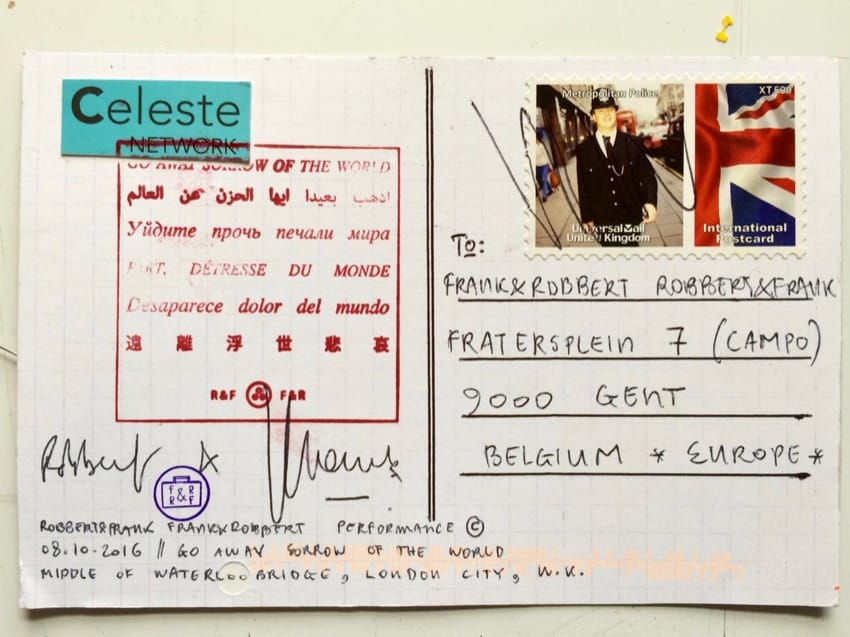 Celeste
NETWORK
GO AWAY SORROW OF THE WORLD
اذهب بعيدا ايها الحزن عن العالم
Уйдите прочь печали мира
PART, DÉTRESSE DU MONDE
Desaparece dolor del mundo
遠 離 浮 世 悲 哀
R&F F&R
Robbert & Frank
F&R
R&F
ROBBERT&FRANK FRANK&ROBBERT PERFORMANCE ©
08.10.2016 // GO AWAY SORROW OF THE WORLD
MIDDLE OF WATERLOO BRIDGE, LONDON CITY, U.K.
Metropolitan Police
UniversalMail
United Kingdom
International
Postcard
TO:
FRANK&ROBBERT ROBBERT&FRANK
FRATERSPLEIN 7 (CAMPO)
9000 GENT
BELGIUM * EUROPE *